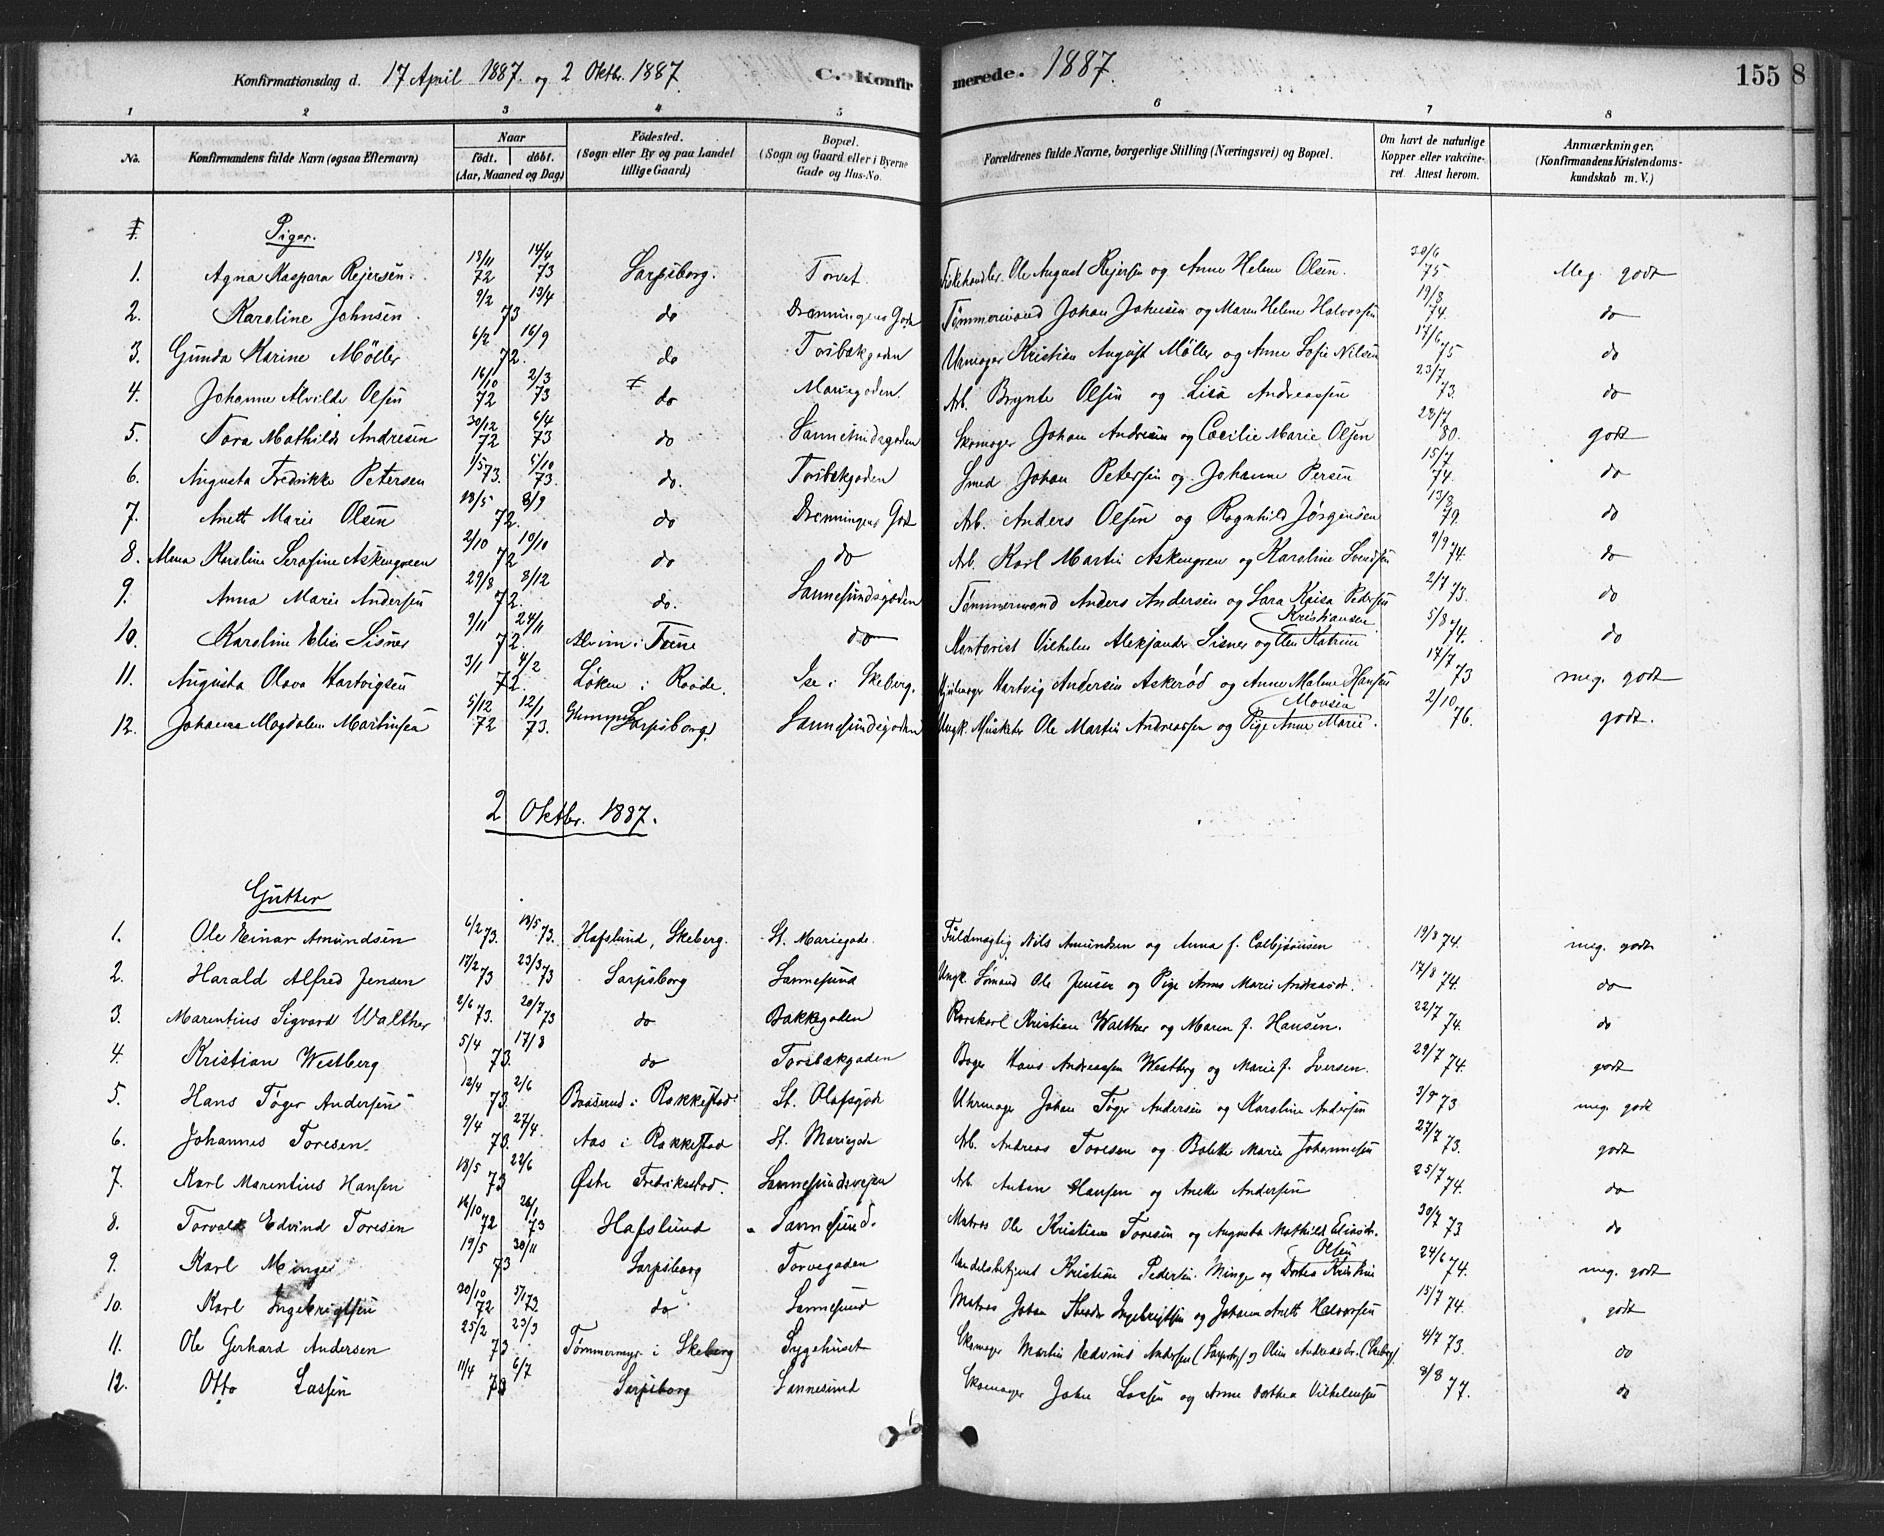 Konfirmationsdag d. 17 April 1887. og 2 Oktbr. 1887. C. Konfirmerede. 1887. 155 8
1 2 3 4 5 6 7 8
No. Konfirmandens fulde Navn (ogsaa Efternavn) Naar födt. döbt. (Aar, Maaned og Dag) Födested. (Sogn eller By og paa Landet tillige Gaard) Bopæl. (Sogn og Gaard eller i Byerne Gade og Hus-No. Forældrenes fulde Navne, borgerlige Stilling (Næringsvei) og Bopæl. Om havt de naturlige Kopper eller vakcineret. Attest herom. Anmærkninger. (Konfirmandens Kristendomskundskab m. V.)
Piger.
1. Agna Kaspara Rejersen. 13/11 72 14/4 73 Sarpsborg. Torvet Fiskehandler Ole August Rejersen og Anne Helene Olsen. 30/6 75 Meg. godt
2. Karoline Johnsen 9/2 13/4 73 do Dronningens Gade Tømmermand Johan Johnsen og Maren Helene Halvorsen 19/8 74. do
3. Gunda Karine Möller 6/2 16/9 72. do Torsbækgaden Urmager Kristian August Möller og Anne Sofie Nilsen 17/6 75 do
4. Johanne Alvilde Olsen 16/10 72 2/3 73 do Mariegaden. Arb. Brynte Olsen og Lisa Andreassen 23/7 73. do
5. Tora Mathilde Andresen 30/12 72 6/4 73 do Sannesundsgaden Skomager Johan Andresen og Cæcilie Marie Olsen 28/7 80. godt
6. Augusta Fredrikke Petersen 1/5 73. 5/10 73. do. Torsbækgaden Smed Johan Petersen og Johanne Persen 15/7 74. do
7. Anett Marie Olsen 18/5 8/9 72. do Dronningens Gade Arb. Anders Olsen og Ragnhild Jørgensen 13/8 79. do
8. Alma Karoline Serafine Askengreen 2/10 19/10 72 do do Arb. Karl Martin Askengreen og Karoline Svendsen 9/9 74. do
9. Anna Marie Andersen 29/8 8/12 72. do. Sannesundsgaden Tømmermand Anders Andersen og Sara Kaisa Pedersen 2/7 73. do
10. Karoline Elise Sisner 9/11 24/11 72. Alvim i Tune do Kontorist Vilhelm Aleksander Sisner og Elen Katrine Kristiansen 5/8 74. do
11. Augusta Olava Hartvigsen 3/1 4/2 72. Løken i Raade. Ise i Skeberg. Hjulmager Hartvig Andersen Askerød og Anne Malene Hansen 17/7 73 meg. godt
12. Johanna Magdalene Martinsen 5/12 72 12/1 73. Sarpsborg. Sannesundsgaden Ungk. Musketer Ole Martin Andreassen og Pige Anne Marie Movsia. 2/10 76. godt.
2 Oktbr. 1887.
Gutter
1. Ole Einar Amundsen 6/2 73. 18/5 73. Hafslund, Skeberg. St. Mariegade. Fuldmægtig Nils Amundsen og Anna f. Colbjørnsen 19/8 74. meg. godt
2. Harald Alfred Jensen 17/2 73 23/3 73 Sarpsborg Sannesund Ungk. Sømand Ole Jensen og Pige Anne Marie Andreasdr. 17/8 74. do
3. Marentius Sigvard Walther 2/6 73. 20/7 73 do Bakkegaden Kristian Walther og Maren f. Hansen. 22/7 74. do
4. Kristian Westberg 5/4 17/8 73. do Torsbækgaden Bager Hans Andreassen Westberg og Marie f. Iversen. 29/7 74. godt
5. Hans Töger Andersen 12/4 2/6 73. i Rakkestad. St. Olafsgade Uhrmager Johan Töger Andersen og Karoline Andersen 73 meg. godt
6. Johannes Toresen. 9/4 27/4. 73. Aas i Rakkestad St. Mariegade Arb. Andreas Toresen og Bolette Marie Johannesen 27/7 73. godt
7. Karl Marentius Hansen 18/5 22/6 73 Østre Fredriksstad. Sannesundsveien Arb. Anton Hansen og Anette Andersen 25/7 74. do
8. Torvald Edvind Toresen 16/10 72 26/1 73 Hafslund Sannesund. Matros Ole Kristian Toresen og Augusta Mathilde Eliasdr. 30/7 73 do
9. Karl Minge 19/5 30/11 73 Sarpsborg Torvegaden Handelsbetjent Kristian Pedersen Minge og Dortea Kristine Olsen 24/6 74. meg. godt
10. Karl Ingebrigtsen 30/10 72 5/1 73. do Sannesund Matros Johan Ingebrigtsen og Johanne Anett Halvorsen 15/7 74. godt
11. Ole Gerhard Andersen 25/2 23/3 73 Tømmermyr i Skeberg Sygehuset Skomager Martin Edvind Andersen (Sarpsbg) og Oline Andreasdr. (Skeberg). 4/7 73. do
12. Otto Lassen 11/4 6/7 73 Sarpsborg Sannesund Skomager Johan Lassen og Anne Dorthea Vilhelmsen 8/8 77. do